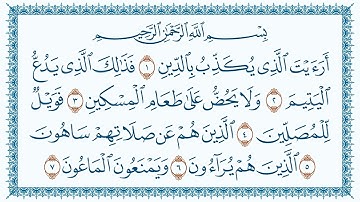 بِسْمِ ٱللَّهِ ٱلرَّحْمَٰنِ ٱلرَّحِيمِ
أَرَءَيْتَ ٱلَّذِي يُكَذِّبُ بِٱلدِّينِ ١ فَذَٰلِكَ ٱلَّذِي يَدُعُّ
ٱلْيَتِيمَ ٢ وَلَا يَحُضُّ عَلَىٰ طَعَامِ ٱلْمِسْكِينِ ٣ فَوَيْلٌ
لِّلْمُصَلِّينَ ٤ ٱلَّذِينَ هُمْ عَن صَلَاتِهِمْ سَاهُونَ
٥ ٱلَّذِينَ هُمْ يُرَآءُونَ ٦ وَيَمْنَعُونَ ٱلْمَاعُونَ ٧